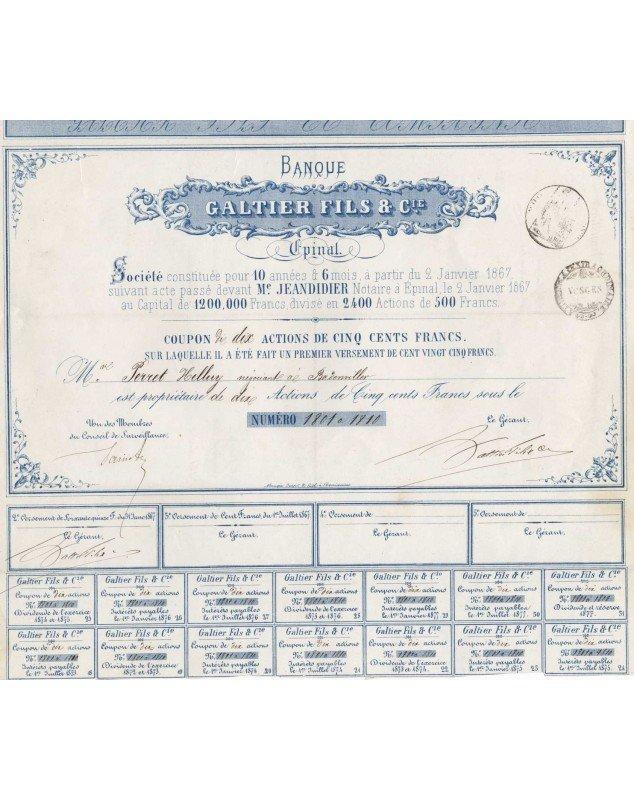 BANQUE
GALTIER FILS & CIE
Épinal.
Société constituée pour 10 années & 6 mois, à partir du 2 Janvier 1867
suivant acte passé devant Me. JEANDIDIER Notaire à Épinal, le 2 Janvier 1867
au Capital de 1200,000 Francs divisé en 2400 Actions de 500 Francs.
COUPON de dix ACTIONS DE CINQ CENTS FRANCS.
SUR LAQUELLE IL A ÉTÉ FAIT UN PREMIER VERSEMENT DE CENT VINGT CINQ FRANCS.
M Perret Helluy négociant à Badonviller
est propriétaire de dix Actions de Cinq cents Francs sous le
NUMÉRO 1801 à 1810
Un des Membres
du Conseil de Surveillance.
Le Gérant.
2e. Versement de Soixante quinze F. du 31 Janer. 1867.
Le Gérant.
3e. Versement de Cent Francs du 1er Juillet 1867.
Le Gérant.
4e. Versement de
Le Gérant.
5e. Versement de
Le Gérant.
Galtier Fils & Cie
Coupon de dix actions
No. 1801 à 1810
Dividende de l'exercice
1874 et 1875 25
Galtier Fils & Cie
Coupon de dix actions
No. 1801 à 1810
Intérêts payables
le 1er Janvier 1876 26
Galtier Fils & Cie
Coupon de dix actions
No. 1801 à 1810
Intérêts payables
le 1er Juillet 1876 27
Galtier Fils & Cie
Coupon de dix actions
No. 1801 à 1810
Dividende de l'exercice
1875 et 1876. 28
Galtier Fils & Cie
Coupon de dix actions
No. 1801 à 1810
Intérêts payables
le 1er Janvier 1877. 29
Galtier Fils & Cie
Coupon de dix actions
No. 1801 à 1810
Intérêts payables
le 1er Juillet 1877. 30
Galtier Fils & Cie
Coupon de dix actions
No. 1801 à 1810
Dividende et réserve
1877. 31
Galtier Fils & Cie
Coupon de dix actions
No. 1801 à 1810
Intérêts payables
le 1er Juillet 1873. 18
Galtier Fils & Cie
Coupon de dix actions
No. 1801 à 1810
Dividende de l'exercice
1872 et 1873
Galtier Fils & Cie
Coupon de dix actions
No. 1801 à 1810
Intérêts payables
le 1er Janvier 1874.
Galtier Fils & Cie
Coupon de dix actions
No. 1801 à 1810
Intérêts payables
le 1er Juillet 1874. 21
Galtier Fils & Cie
Coupon de dix actions
No. 1801 à 1810
Dividende de l'exercice
1873 et 1874. 22
Galtier Fils & Cie
Coupon de dix actions
No. 1801 à 1810
Intérêts payables
le 1er Janvier 1875 23
Galtier Fils & Cie
Coupon de dix actions
No. 1801 à 1810
Intérêts payables
le 1er Juillet 1875. 24